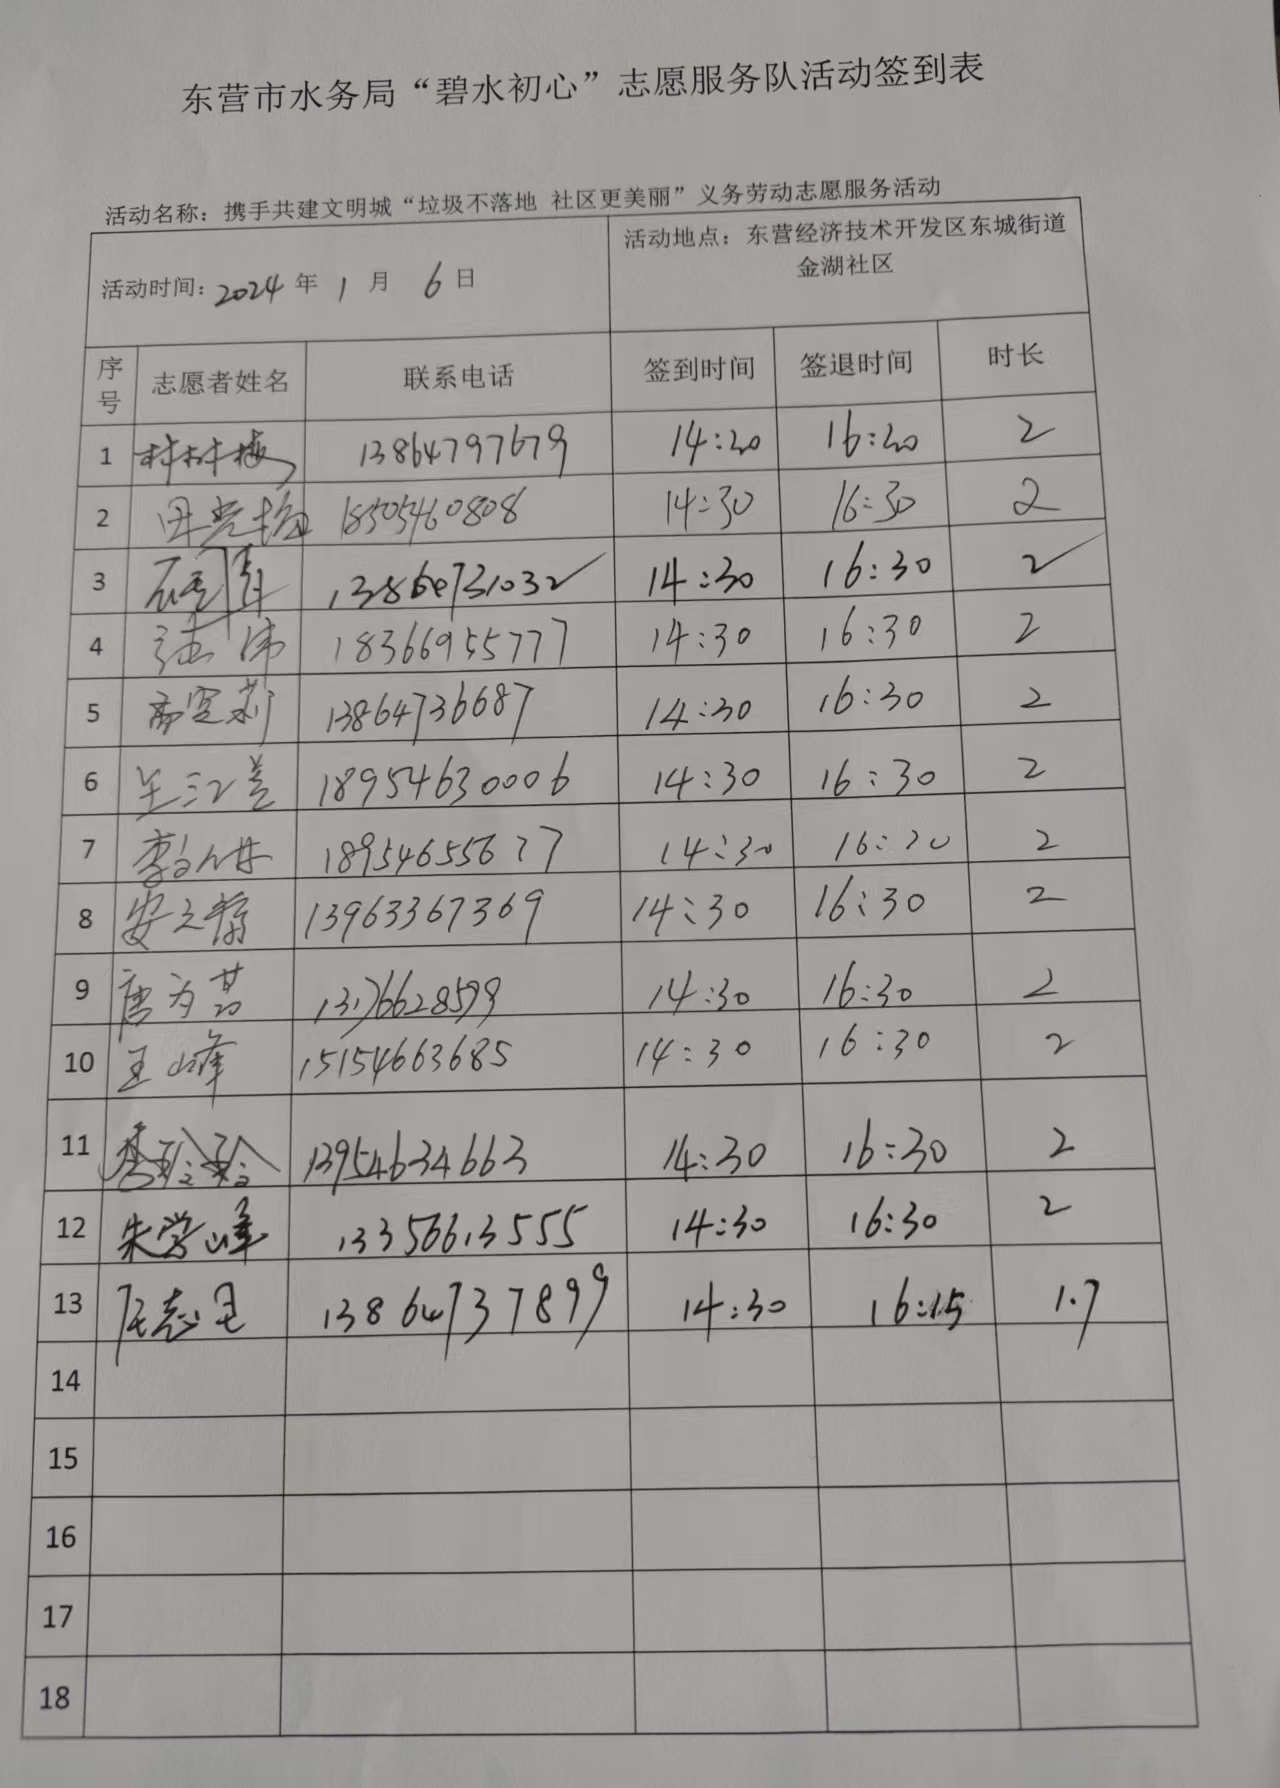 东营市水务局“碧水初心”志愿服务队活动签到表
活动名称：携手共建文明城“垃圾不落地 社区更美丽”义务劳动志愿服务活动
活动时间：2024年1月6日 活动地点：东营经济技术开发区东城街道
金湖社区
序号 志愿者姓名 联系电话 签到时间 签退时间 时长
1 林林梅 13864797679 14:20 16:20 2
2 18505460808 14:30 16:30 2
3 14:30 16:30 2
4 伟 18366955777 14:30 16:30 2
5 13864736687 14:30 16:30 2
6 18954630006 14:30 16:30 2
7 18954655677 14:30 16:30 2
8 安文静 13963367369 14:30 16:30 2
9 唐为 14:30 16:30 2
10 王山峰 15154663685 14:30 16:30 2
11 李玲玲 13954634663 14:30 16:30 2
12 朱学峰 13356613555 14:30 16:30 2
13 13864737899 14:30 16:15 1.7
14
15
16
17
18